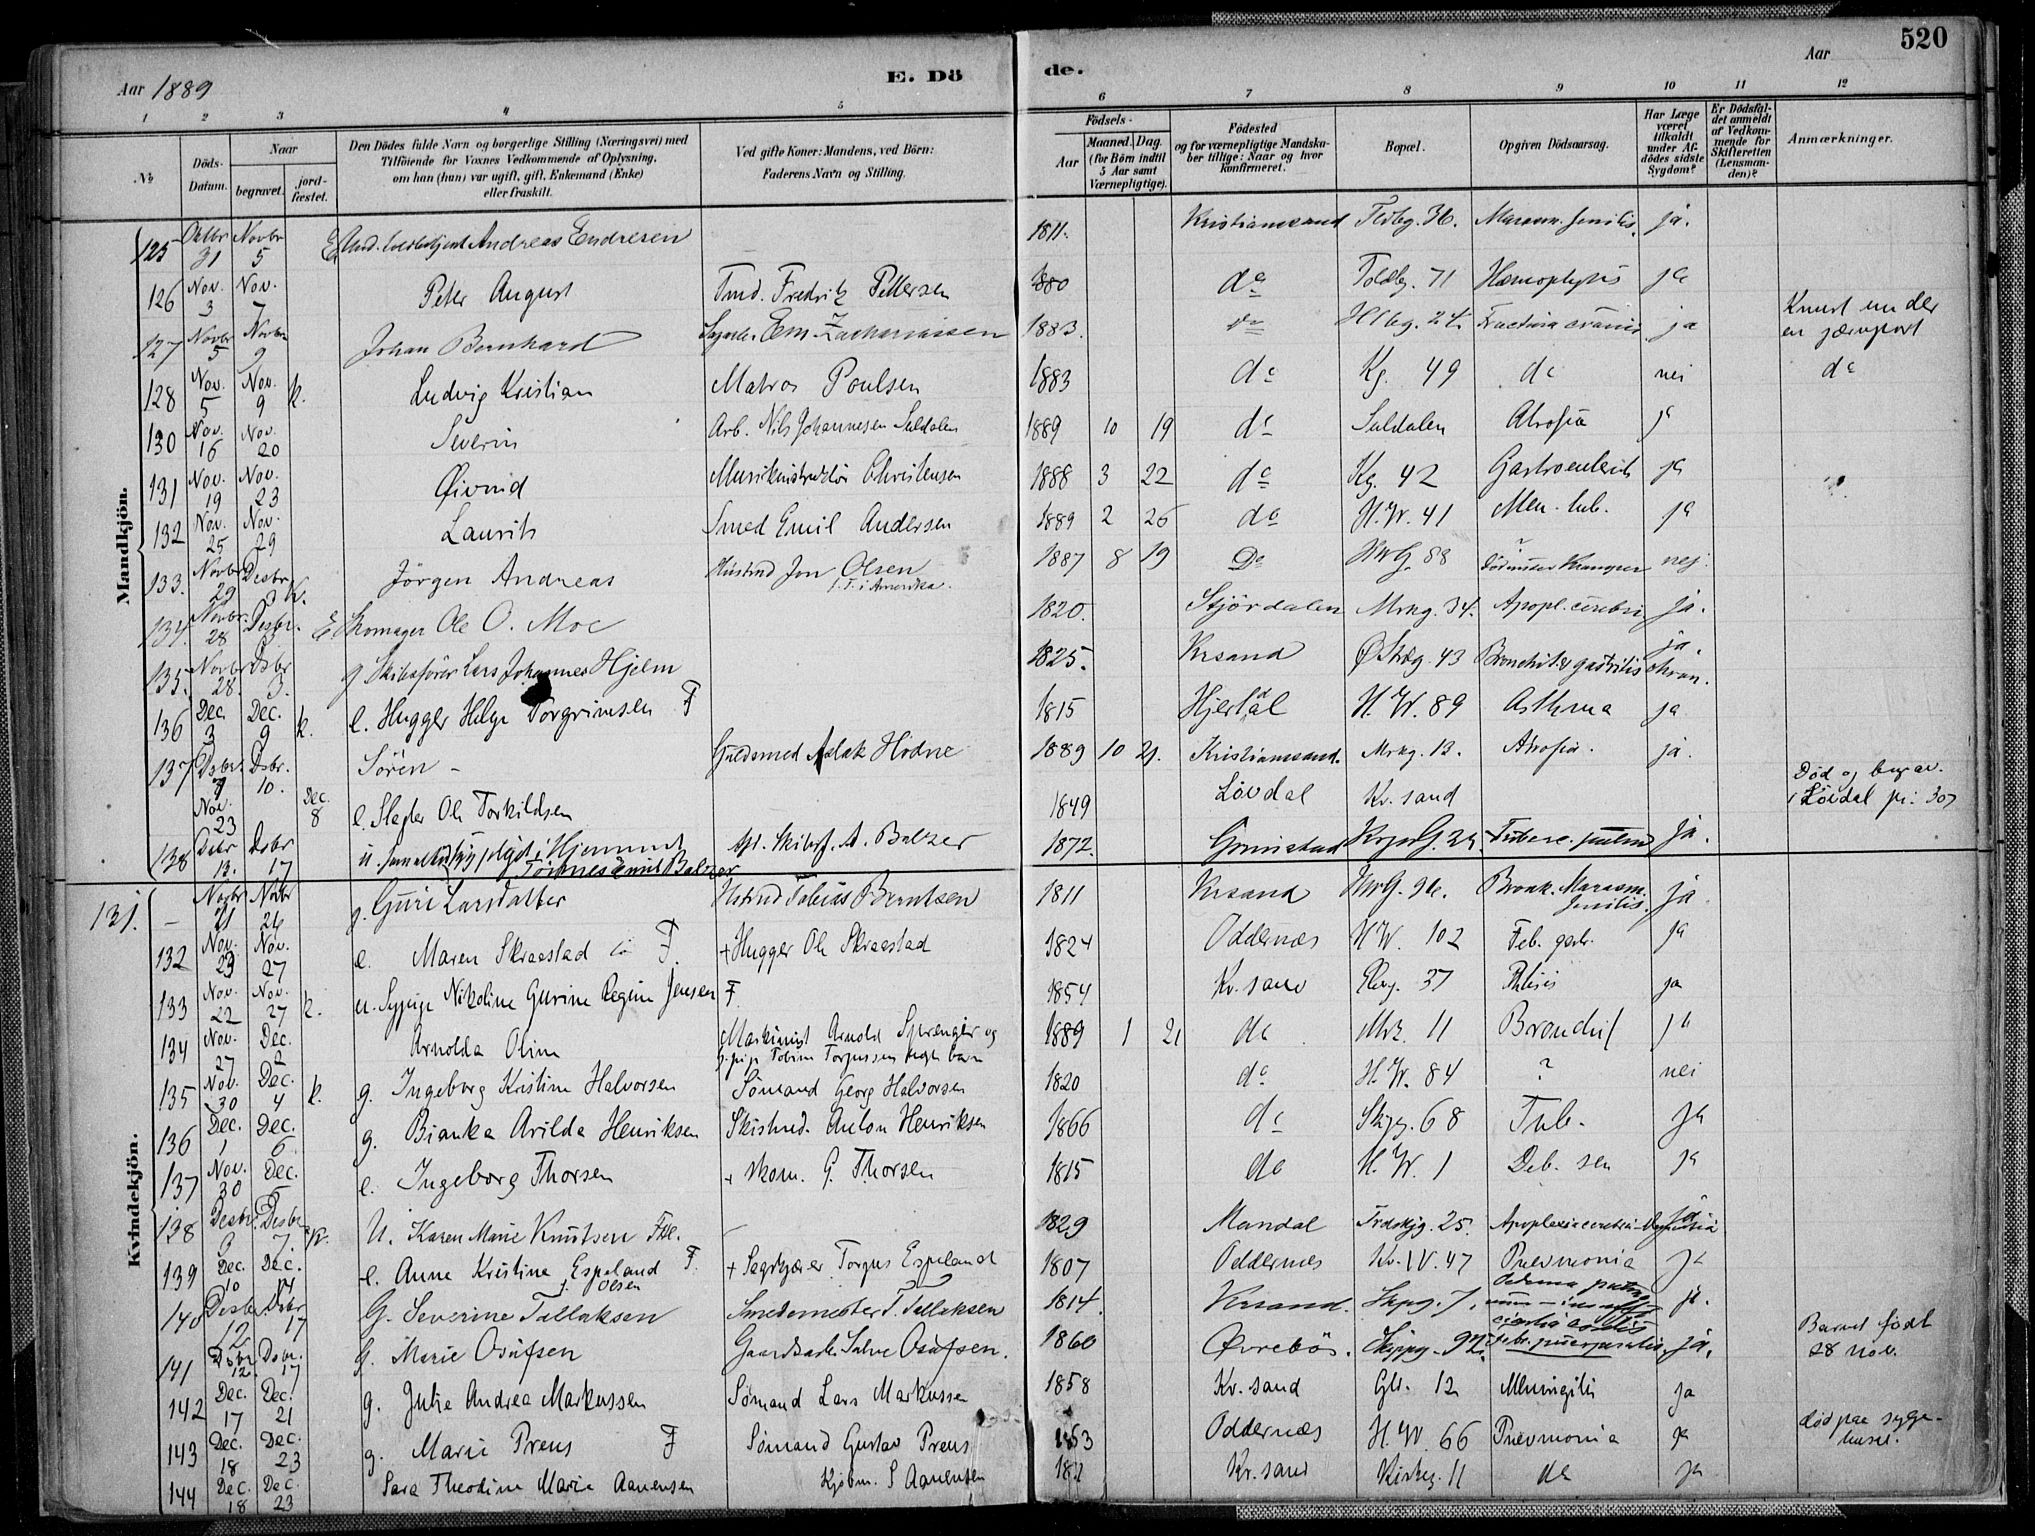 520
Aar 1889
E. Dö
de.
Aar
1 2 3 4 5 6 7 8 9 10 11 12
No
Döds-Datum.
Naar
begravet.
jord-fæstet.
Den Dödes fulde Navn og borgerlige Stilling (Næringsvei) med
Tilföiende for Voxnes Vedkommende af Oplysning,
om han (hun) var ugift, gift, Enkemand (Enke)
eller fraskilt.
Ved gifte Koner: Mandens, ved Börn:
Faderens Navn og Stilling.
Födsels-
Aar
Maaned. Dag.
(for Börn indtil
5 Aar samt
Værnepligtige).
Födested
og for værnepligtige Mandska-
ber tillige: Naar og hvor
konfirmeret.
Bopæl.
Opgiven Dödsaarsag.
Har Læge
været
tilkaldt
under Af-
dödes sidste
Sygdom?
Er Dödsfal-
det anmeldt
af Vedkom-
mende for
Skifteretten
(Lensman-
den)?
Anmærkninger.
Mandkjön.
125 Oktbr 31 Novbr 5 Andreas Endresen 1811. Kristianssand 36. Marasm. senilis. ja.
126 Nov. 3 Nov. 7 Peter August Fredrik Pettersen 1880 do 71 Hæmophysis ja
127 Novbr 5 Novbr 9 Johan Bernhard Em. Zachariassen 1883. do 24. Fractura cranii ja Knust under en jærnport
128 Nov. 5 Nov. 9 k. Ludvig Kristian Matros Poulsen 1883 do Kg. 49 do nei do
130 Nov. 16 Nov. 20 Severin Arb. Nils Johannesen Suldalen 1889 10 19 do Suldalen Atrofia ja
131 Nov. 19 Nov. 23 Øivind Musikinstruktör Christensen 1888 3 22 do Kg. 42 Gastroenterit ja
132 Nov. 25 Nov. 29 Laurits Smed Emil Andersen 1889 2 26 do H.W. 41 Men. tub. ja
133. Novbr 29 Desbr 3 k. Jörgen Andreas Olsen f. T. i Amerika. 1887 8 19 Do 88 Död under Kramper nej
134. Novbr. 28 Desbr. 3 E Skomager Ole O. Moe 1820. Stjördalen Mrkg. 34. Apopl. cerebri ja.
135. Novbr 28. Dsbr 3. g Skibsförer Lars Johannes Hjelm 1825. Krsand 43 Bronchit & gastritis chron. ja.
136 Dec. 3 Dec. 9 k. e. Hugger Helge Torgrimsen F 1815 Hjertdal H.W. 89 Asthma ja
137 Dsbr. 7 Dsbr. 10. Sören - Guldsmed Aslak Hodne 1889 10 21. Kristianssand. Mrkg. 13. Atrofia. ja.
Nov. 23 Dec. 8 e. Slagter Ole Torkildsen 1849 Lövdal Kr. sand Död og begrav. i Lövdal pr: 307
138 Dsbr 13. Dsbr 17 u. Hjemmet Balzer Skibsf. A. Balzer 1872. Grimstad Tuberc. pulm ja.
Kvindekjön.
131. - Novbr 21 Novbr 26 g. Guri Larsdatter Tobias Berntsen 1811 Krsand Bronk. Marasm. senilis. ja
132 Nov. 23 Nov. 27 e. Maren Skraastad F. + Hugger Ole Skraastad 1824 Oddernæs H.W. 102 Feb. gastr. ja
133 Nov. 22 Nov. 27 k. u. Sypige Nikoline Gurine Regine Jensen F 1854 Kr. sand 37 Phtisis ja
134 Nov. 27 Dec. 2 Arnolda Oline Maskinist Arnold Sprenger og pige Tobine Torjussen uegte barn 1889 1 21 do 11 Bronchit ja
135 Nov. 30 Dec. 4 k. g. Ingeborg Kristine Halvorsen Sömand Georg Halvorsen 1820 do H.W. 84 ? nei
136 Dec. 1 Dec. 6 g. Bianka Arilda Henriksen Anton Henriksen 1866 do Skpg. 68 Tub. ja
137 Nov. 30 Dec. 5 e. Ingeborg Thorsen + Skom. G. Thorsen 1815 do H.W. 1 Deb. sen ja
138 Desbr. 3 Desbr 7 k. U. Karen Marie Knutsen 1829 Mandal 25. Apoplexia cerebri ja
139 Dec. 10 Dec. 14 e. Anne Kristine Espeland f. Olsen F. + Torgus Espeland 1807 Oddernæs Kr. W. 47 Pnevmonia ja
140 Desbr. 12 Dsbr 17 G. Severine Tallaksen Smedemester T. Tallaksen 1814. Krsand. Skpg. 7. ja.
141 Dsbr 12. Dsbr. 17 g. Marie Osufsen Gaardarb. Salve Osufsen. 1860 Øvrebö. Skippg. puerperalis. ja. Barnet födt 28 nov.
142 Dec. 17 Dec. 21 g. Julie Andrea Markussen Sömand Lars Markussen 1858 Kr. sand 12 Meningitis ja
143 Dec. 18 Dec. 23 g. Marie Preus F Sömand Gustav Preus 1863 Oddernæs H.W. 66 Pnevmonia ja död paa syge-huset.
144 Dec. 18 Dec. 23 Sara Theodine Marie Aanensen Kjöbm. S Aanensen Kr. sand Kirkeg. 11 do ja